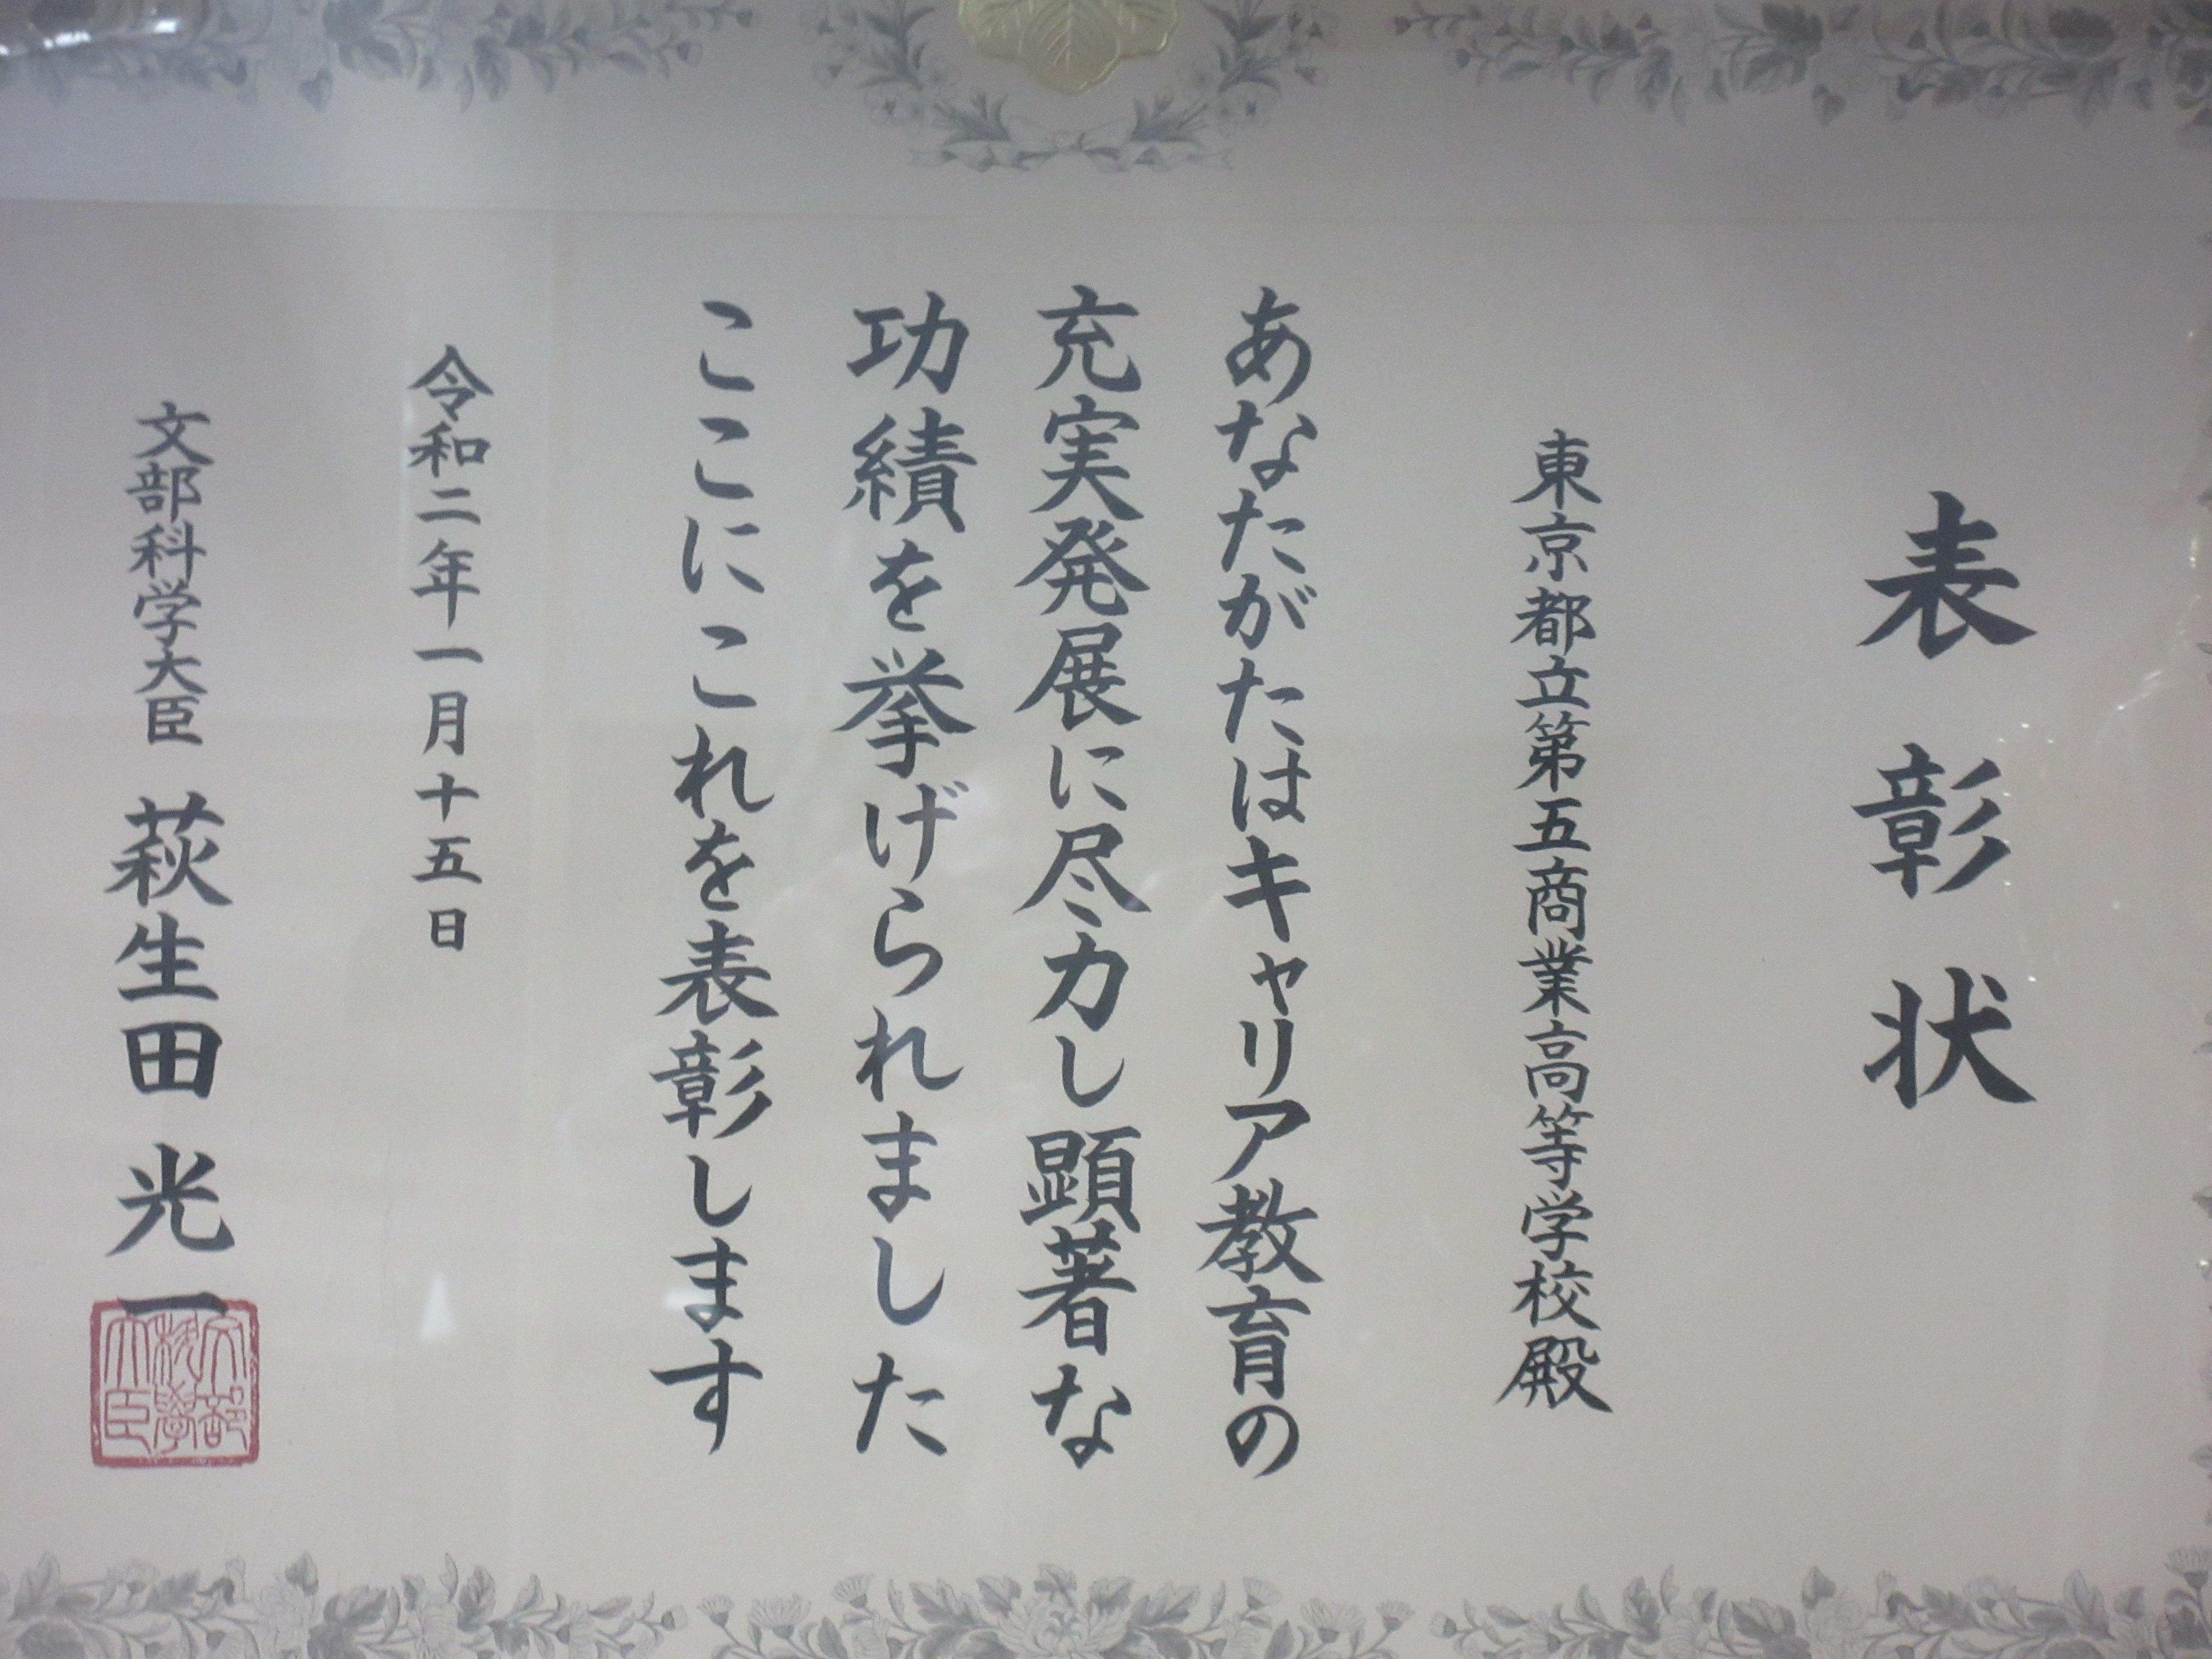 表彰状
東京都立第五商業高等学校殿
あなたがたはキャリア教育の
充実発展に尽力し顕著な
功績を挙げられました
ここにこれを表彰します
令和二年一月十五日
文部科学大臣 萩生田光一
文部科學大臣